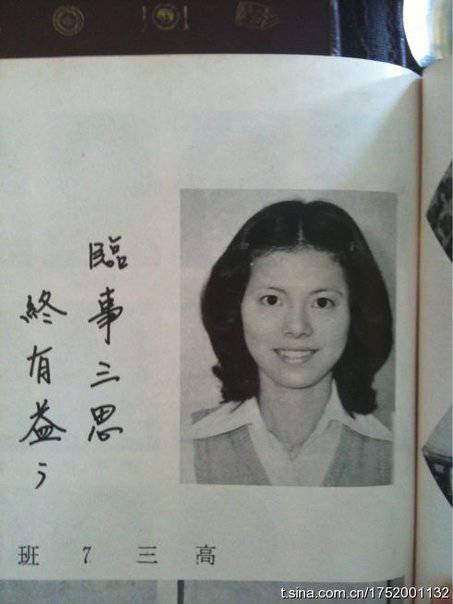 臨事三思
終有益
高三7班
t.sina.com.cn/1752001132